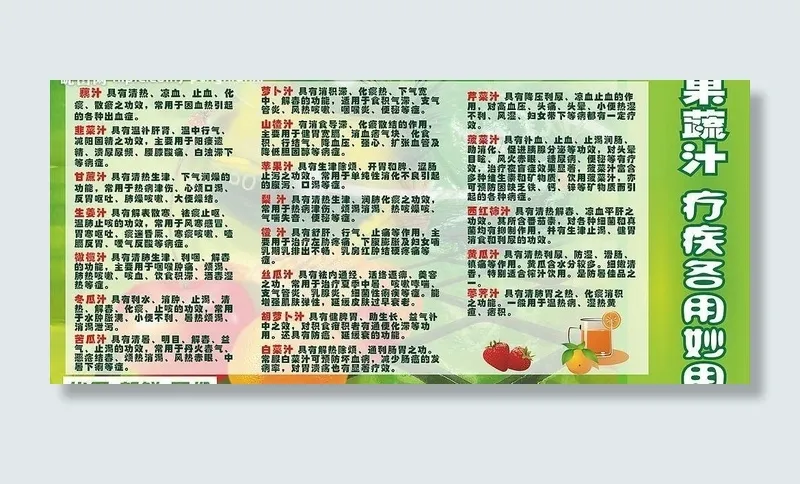 果蔬汁 疗疾各用妙用
藕汁 具有清热、凉血、止血、化
痰、散瘀之功效，常用于因血热引起
的各种出血症。
韭菜汁 具有温补肝肾，温中行气、
减阳固精之功效，主要用于阳痿遗
精、溃尿尿频、腰膝酸痛、白浊滞下
等病症。
甘蔗汁 具有清热生津、下气润燥的
功能，常用于热病津伤，心烦口渴、
反胃呕吐、肺燥咳嗽、大便燥结。
生姜汁 具有解表散寒、祛痰止呕，
温肺止咳的功效，常用于风寒感冒、
胃寒呕吐、痰迷昏厥、寒痰咳嗽、噎
膈反胃、嗳气反酸等病症。
具有清肺生津、利咽、解毒
的功能，主要用于咽喉肿痛、烦渴、
肺热咳嗽、饮食积滞、酒毒湿
热等症。
冬瓜汁 具有利水、消肿、止渴、清
热、解毒、化痰、止咳的功效，常用
于水肿胀满、小便不利、暑热烦渴、
消渴泄泻。
苦瓜汁 具有清暑、明目、解毒、益
气、止渴的功效，常用于丹火毒气、
恶疮结毒、烦热消渴、风热赤眼、中
暑下痢等症。
萝卜汁 具有消积滞、化痰热、下气宽
中、解毒的功能，适用于食积气滞、支气
管炎、风热咳嗽、咽喉炎、便秘等症。
山楂汁 有消食导滞、化痰散结的作用，
主要用于健胃宽膈、消血痞气块、化食
积、行结气、降血压、强心、扩张血管及
降低胆固醇等症。
苹果汁 有生津除烦、开胃和脾、涩肠
止泻之功效。常用于单纯性消化不良引起
的腹泻、口渴等症。
梨 汁 具有清热生津、润肺化痰之功效，
常用于热病津伤、烦渴消渴、热燥咳嗽、
气喘失音、便秘等症。
汁 具有舒肝、行气、止痛等作用，主
要用于治疗左肋疼痛、下腹膨胀及妇女哺
乳期乳排出不畅、乳房红肿结硬疼痛等
症。
丝瓜汁 具有祛内通经、活络通瘀、美容
之功，常用于治疗夏季中暑、咳嗽哮喘、
支气管炎、乳腺炎、细菌性痢疾等症。能
增强肌肤弹性，延缓皮肤过早衰老。
胡萝卜汁 具有健脾胃、助生长、益气补
中之效，对积食滞积者有通便化滞等功
用。还具有防癌、延缓衰的功能。
白菜汁 具有解热除烦、通利肠胃之功。
常服白菜汁可预防坏血病，减少肠癌的发
病率，对胃溃疡也有显著疗效。
芹菜汁 具有降压利尿、凉血止血的作
用，对高血压、头痛、头晕、小便热湿
不利、风湿、妇女带下等病都有一定疗
效。
菠菜汁 具有补血、止血、止渴润肠、
助消化、促进胰腺分泌等功效，对头晕
目眩、风火赤眼、糖尿病、便秘等有疗
效，治疗夜盲症效果显著，菠菜汁富含
多种维生素和矿物质，饮用菠菜汁，亦
可预防因缺乏铁、钙、锌等矿物质而引
起的各种病症。
西红柿汁 具有清热解毒、凉血平肝之
功效。其所含番茄素，对各种细菌和真
菌均有抑制作用，并有生津止渴、健胃
消食和利尿的功效。
黄瓜汁 具有清热利尿、防湿、滑肠、
镇痛等作用。黄瓜含水分较多。细嫩清
香，特别适合榨汁饮用。是防暑佳品之
一。
荸荠汁 具有清肺胃之热、化痰消积
之功能。一般用于温热病、湿热黄
疸、痞积。